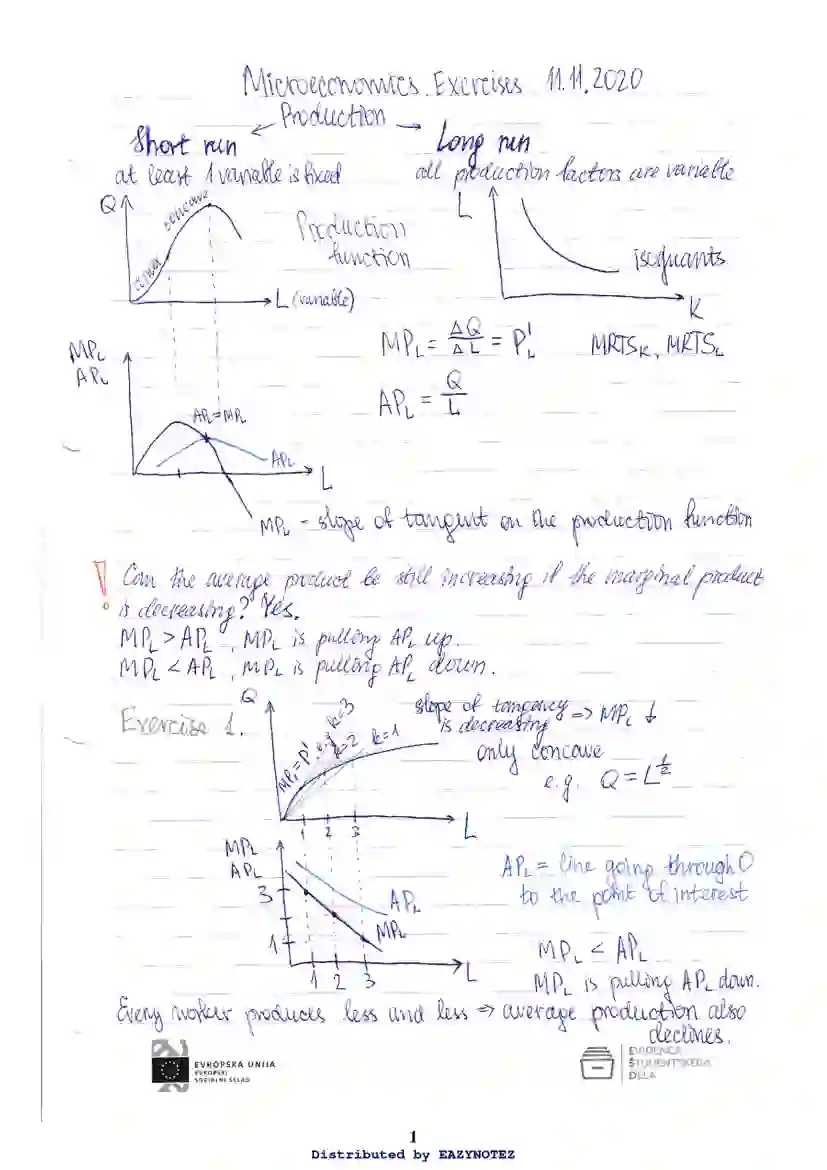 Microeconomics Exercises 11.11.2020
Production
Short run
Long run
at least 1 variable is fixed
all production factors are variable
Q
concave
convex
L (variable)
Production
function
L
isoquants
K
MPL = ΔQ/ΔL = P'L
MRTSK, MRTSL
APL = Q/L
MPL
APL
APL=MPL
APL
L
MPL - slope of tangent on the production function
! Can the average product be still increasing if the marginal product
is decreasing? Yes.
MPL > APL , MPL is pulling APL up.
MPL < APL , MPL is pulling APL down.
Exercise 1.
Q
MPL = P' e.g. k=3
k=2
k=1
slope of tangency
is decreasing => MPL ↓
only concave
e.g. Q = L^1/2
1 2 3
L
MPL
APL
3
1
APL
MPL
1 2 3
L
APL = line going through 0
to the point of interest
MPL < APL
MPL is pulling APL down.
Every worker produces less and less => average production also
declines.
EVROPSKA UNIJA
EVROPSKI
SOCIALNI SKLAD
EVIDENCA
ŠTUDENTSKEGA
DELA
1
Distributed by EAZYNOTEZ